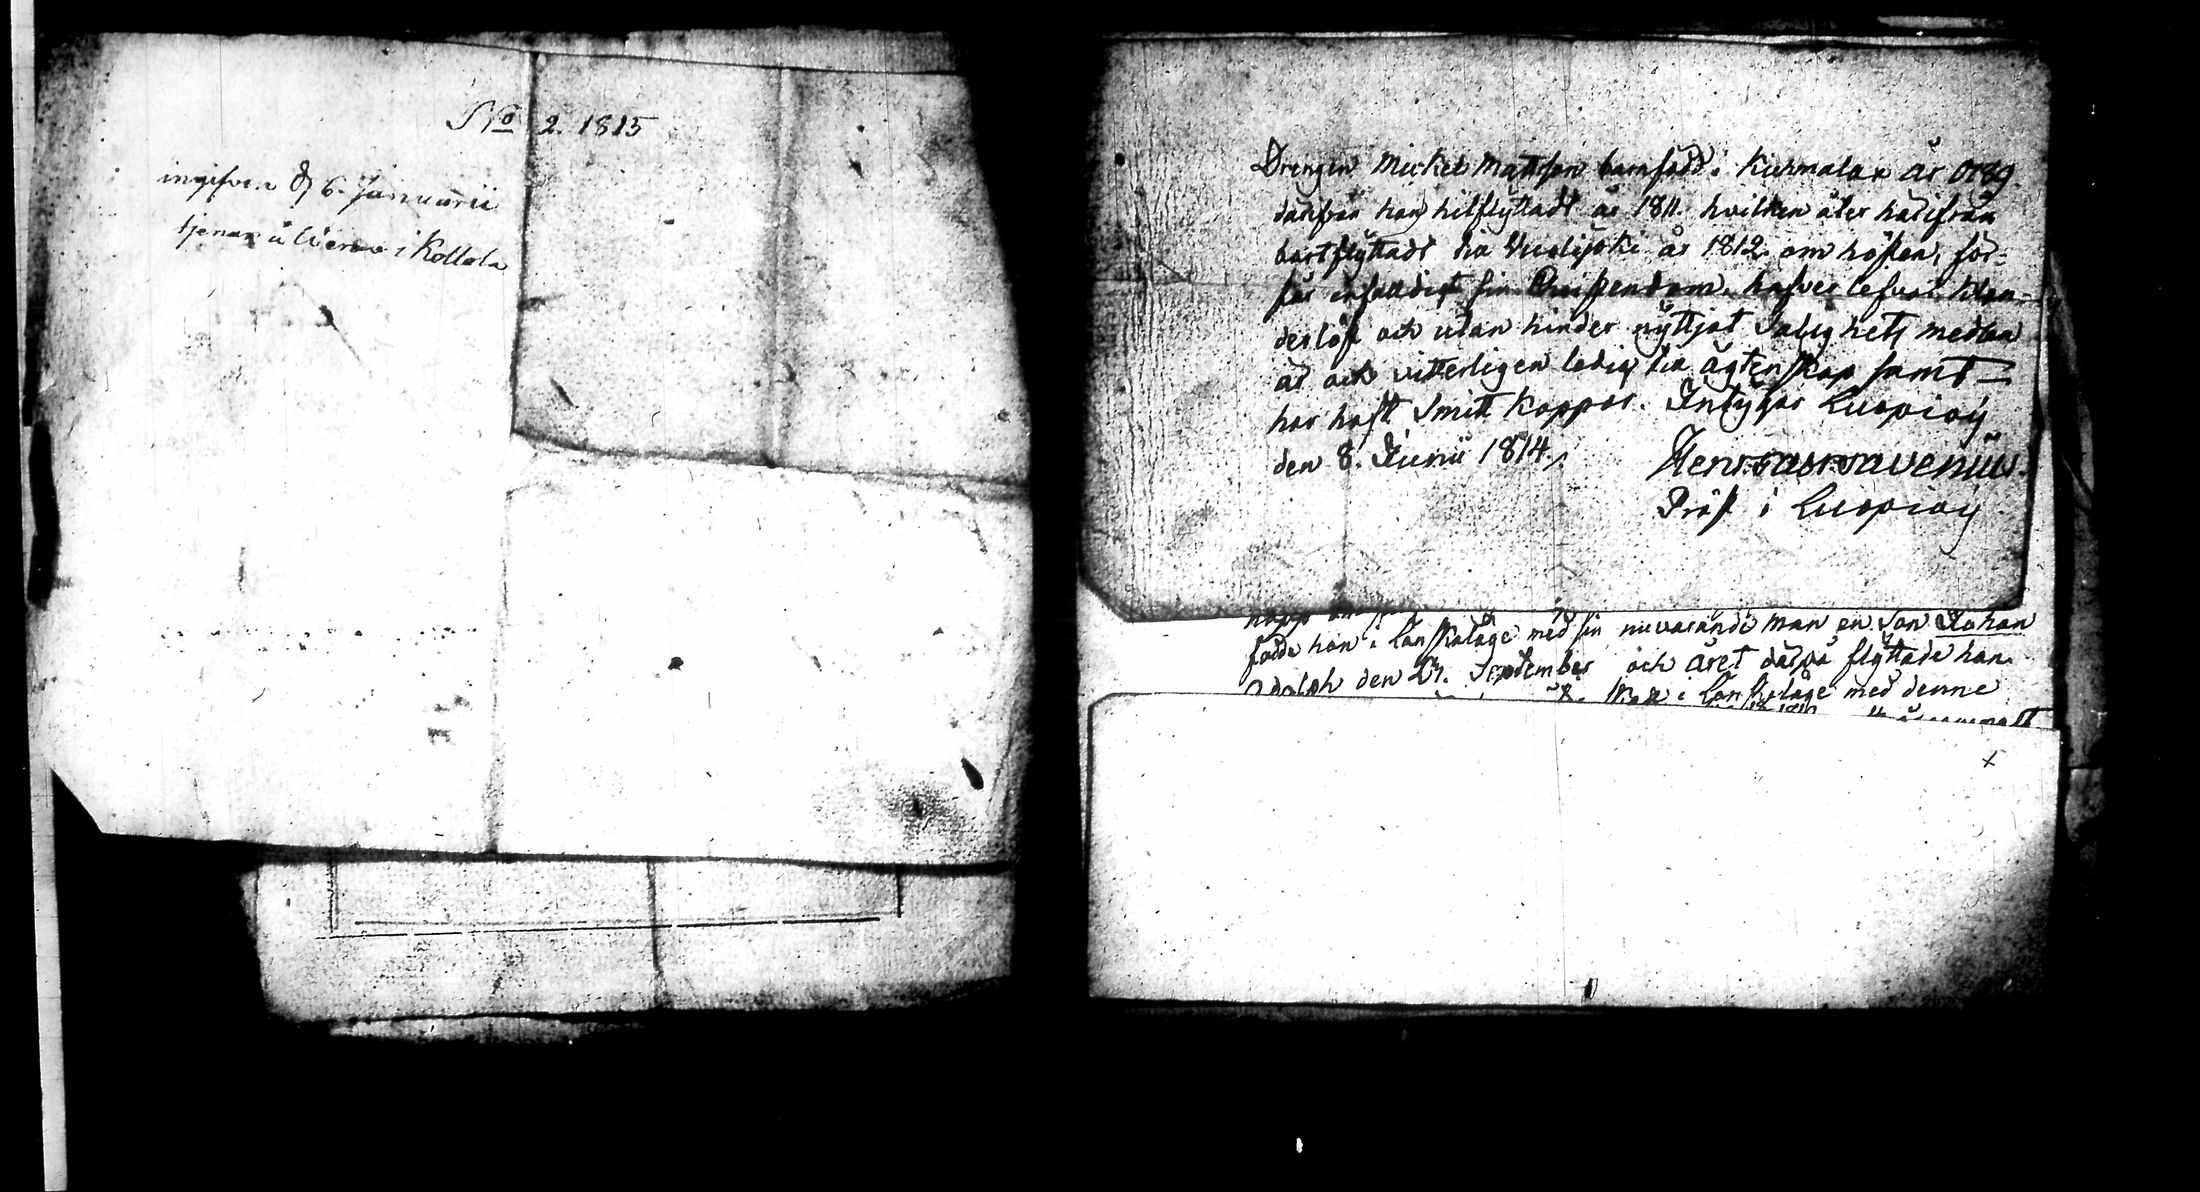 No 2. 1815
ingifven d 6. Januarii
tjenar å i Kollola
Drengen Mickel Mattsson barnfödd i Kuhmalax år 1789
därifrån han hitflyttadt år 1811. hvilken åter härifrån
bortflyttadt till Vuolijoki år 1812. om hösten, för-
står enfalldigt sin Christendom, hafver lefvat klan-
derlöst och utan hinder nyttjat Salighets medlen
är ock vitterligen ledig till ägtenskap samt
har haft Smitt Koppor. Intygar Luopioij
den 8. Junii 1814.
Präst i Luopioij
födde hon i Lanskalage med sin nuvarande man en Son Johan
Adolph den 27. September och året därpå flyttade han
i Lanskelage med denne
x